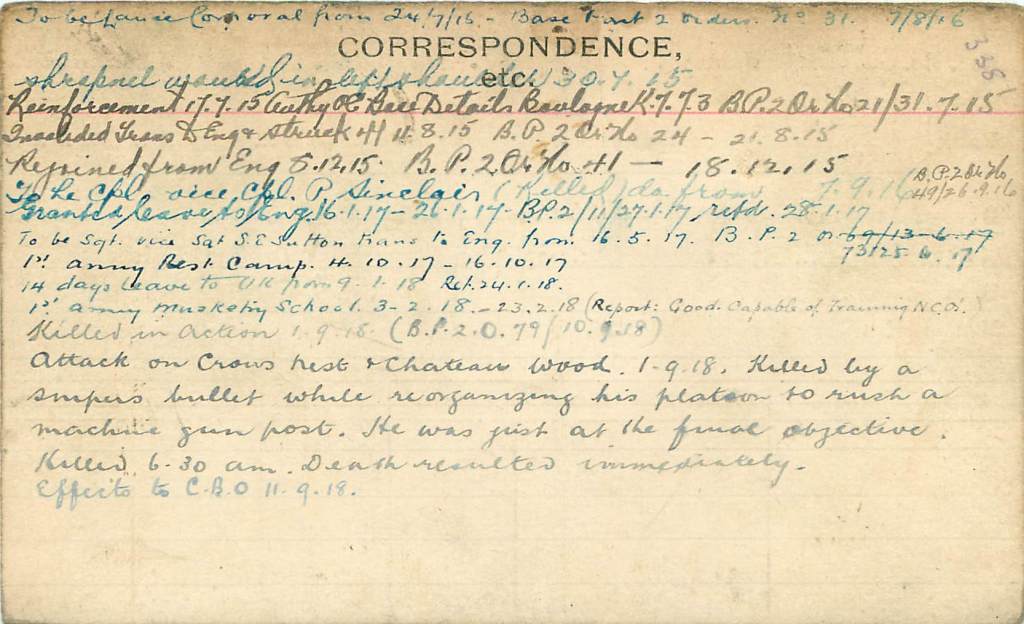 To be Lance Corporal from 24/7/16 - Base Part 2 Orders. No 31. 7/8/16
CORRESPONDENCE,
etc.
338
shrapnel wound in left shoulder 30.7.15
Reinforcement 17.7.15 Authy OC Base Details Boulogne K.7.73 B.P.2 Or No 21/31.7.15
Invalided Trans D Eng & struck off 11.8.15 B.P. 2 Or No 24 - 21.8.15
Rejoined from Eng 5.12.15. B.P. 2 Or No. 41 — 18.12.15
To be Cpl vice Cpl. P. Sinclair (Killed) da from 7.9.16 B.P.2 Or No
49/26.9.16
Granted leave to Eng. 16.1.17 - 26.1.17. B.P.2/11/27.1.17 retd. 28.1.17
To be Sgt. vice Sgt S.E Sutton trans to Eng. from 16.5.17. B.P. 2 Or 69/13-6-17
73/25.6.17
1st Army Rest Camp. 4.10.17 - 16.10.17
14 days leave to UK from 9.1.18 Ret. 24.1.18.
1st Army Musketry School. 3-2.18. - 23.2.18 (Report: Good. Capable of Training N.C.O.)
Killed in Action 1.9.18. (B.P.2.O.79/10.9.18)
Attack on Crows Nest & Chateau Wood. 1-9.18. Killed by a
snipers bullet while reorganizing his platoon to rush a
machine gun post. He was just at the final objective.
Killed 6-30 am. Death resulted immediately.
Effects to C.B.O 11.9.18.